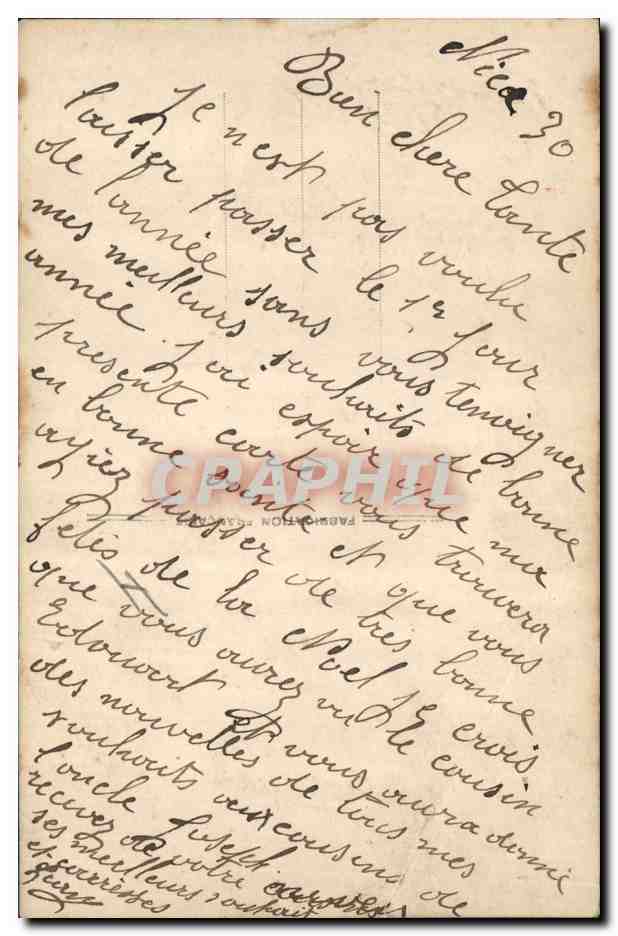 Nice 30
Bien chere tante
Je n'est pas voulu
laisser passer le 1er jour
de année sans vous temoigner
mes meilleurs souhaits de bonne
année. j'ai espoir que ma
presente carte vous truvera
en bonne sante et que vous
ayiez passer de tres bonne
fetes de la Noel je crois
que vous aurez vu le cousin
Edouart et vous aura donné
des nouvelles de tous mes
souhaits aux cousins de
l'oncle Joseph
recevez de votre
ses meilleurs souhait
et caresses
FABRICATION FRANÇAISE
CPAPHIL